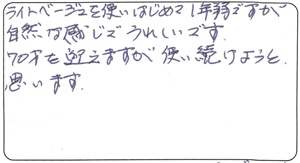 ライトベージュを使いはじめて1年弱ですが
自然な感じでうれしいです。
70才を迎えますが使い続けようと
思います.